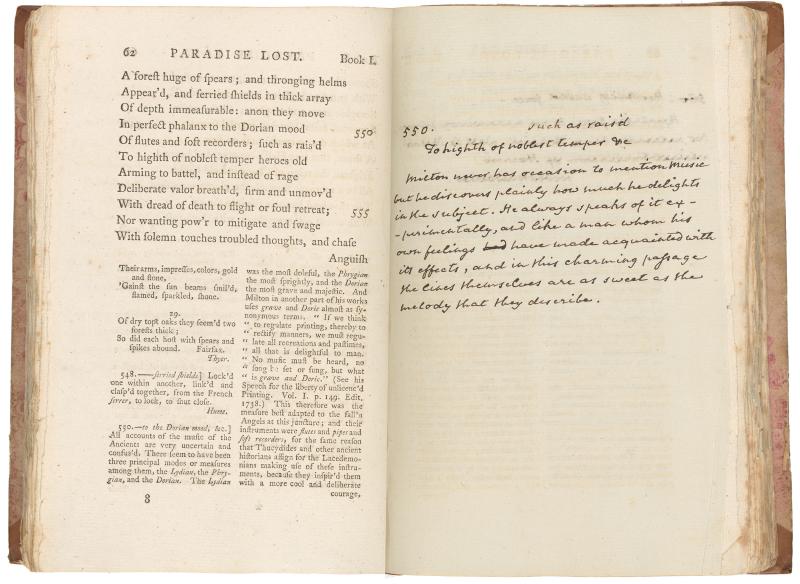 62 PARADISE LOST. Book I.
A foreſt huge of ſpears; and thronging helms
Appear'd, and ſerried ſhields in thick array
Of depth immeaſurable: anon they move
In perfect phalanx to the Dorian mood 550
Of flutes and ſoft recorders; ſuch as rais'd
To highth of nobleſt temper heroes old
Arming to battel, and inſtead of rage
Deliberate valor breath'd, firm and unmov'd
With dread of death to flight or foul retreat; 555
Nor wanting pow'r to mitigate and ſwage
With ſolemn touches troubled thoughts, and chaſe
Anguiſh
Their arms, impreſſes, colors, gold
and ſtone,
'Gainſt the ſun beams ſmil'd,
flamed, ſparkled, ſhone.
29.
Of dry topt oaks they ſeem'd two
foreſts thick;
So did each hoſt with ſpears and
ſpikes abound. Fairfax.
Thyer.
548.—ſerried ſhields] Lock'd
one within another, link'd and
claſp'd together, from the French
ſerrer, to lock, to ſhut cloſe.
Hume.
550.—to the Dorian mood, &c.]
All accounts of the muſic of the
Ancients are very uncertain and
confus'd. There ſeem to have been
three principal modes or meaſures
among them, the Lydian, the Phry-
gian, and the Dorian. The Lydian
was the moſt doleful, the Phrygian
the moſt ſprightly, and the Dorian
the moſt grave and majeſtic. And
Milton in another part of his works
uſes grave and Doric almoſt as ſy-
nonymous terms. “ If we think
“ to regulate printing, thereby to
“ rectify manners, we muſt regu-
“ late all recreations and paſtimes,
“ all that is delightful to man.
“ No muſic muſt be heard, no
“ ſong be ſet or ſung, but what
“ is grave and Doric.” (See his
Speech for the liberty of unlicenc'd
Printing. Vol. I. p. 149. Edit.
1738.) This therefore was the
meaſure beſt adapted to the fall'n
Angels at this juncture; and their
inſtruments were flutes and pipes and
ſoft recorders, for the ſame reaſon
that Thucydides and other ancient
hiſtorians aſſign for the Lacedemo-
nians making uſe of theſe inſtru-
ments, becauſe they inſpir'd them
with a more cool and deliberate
courage,
8
550. such as rais'd
To highth of noblest temper &c
Milton never has occasion to mention Music
but he discovers plainly how much he delights
in the subject. He always speaks of it ex-
-perimentally, and like a man whom his
own feelings had have made acquainted with
its effects, and in this charming passage
the lines themselves are as sweet as the
melody that they describe.